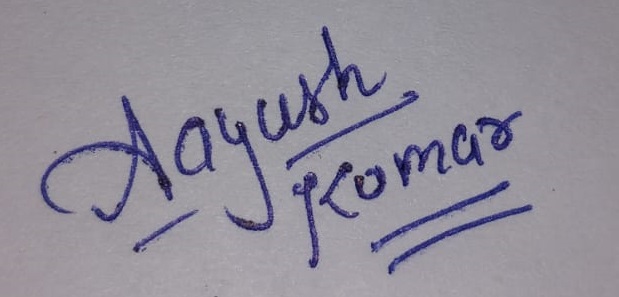 Aayush
Kumar